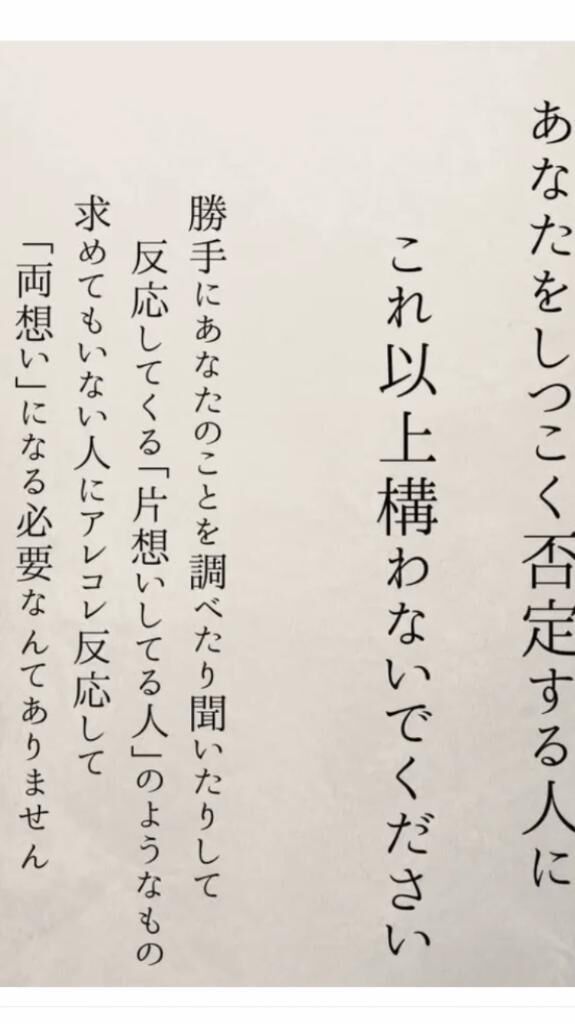 あなたをしつこく否定する人に
これ以上構わないでください
勝手にあなたのことを調べたり聞いたりして
反応してくる「片想いしてる人」のようなもの
求めてもいない人にアレコレ反応して
「両想い」になる必要なんてありません